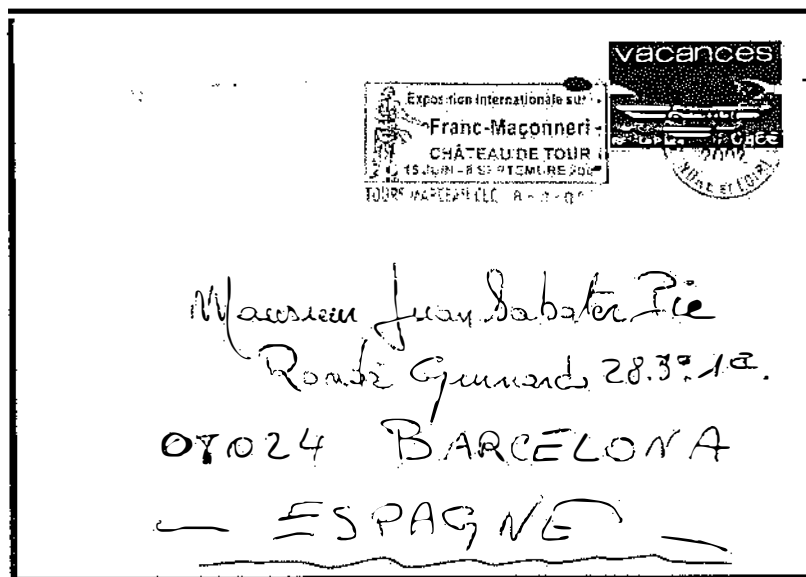 vacances
Exposition Internationale sur
Franc-Maçonneri
CHÂTEAU DE TOUR
15 JUIN - 8 SEPTEMBRE 200
2002
TOURS MARCEAU CLC
Monsieur Juan Sabater Pie
Ronda Guinardo 28.3º.1ª.
08024 BARCELONA
— ESPAGNE —